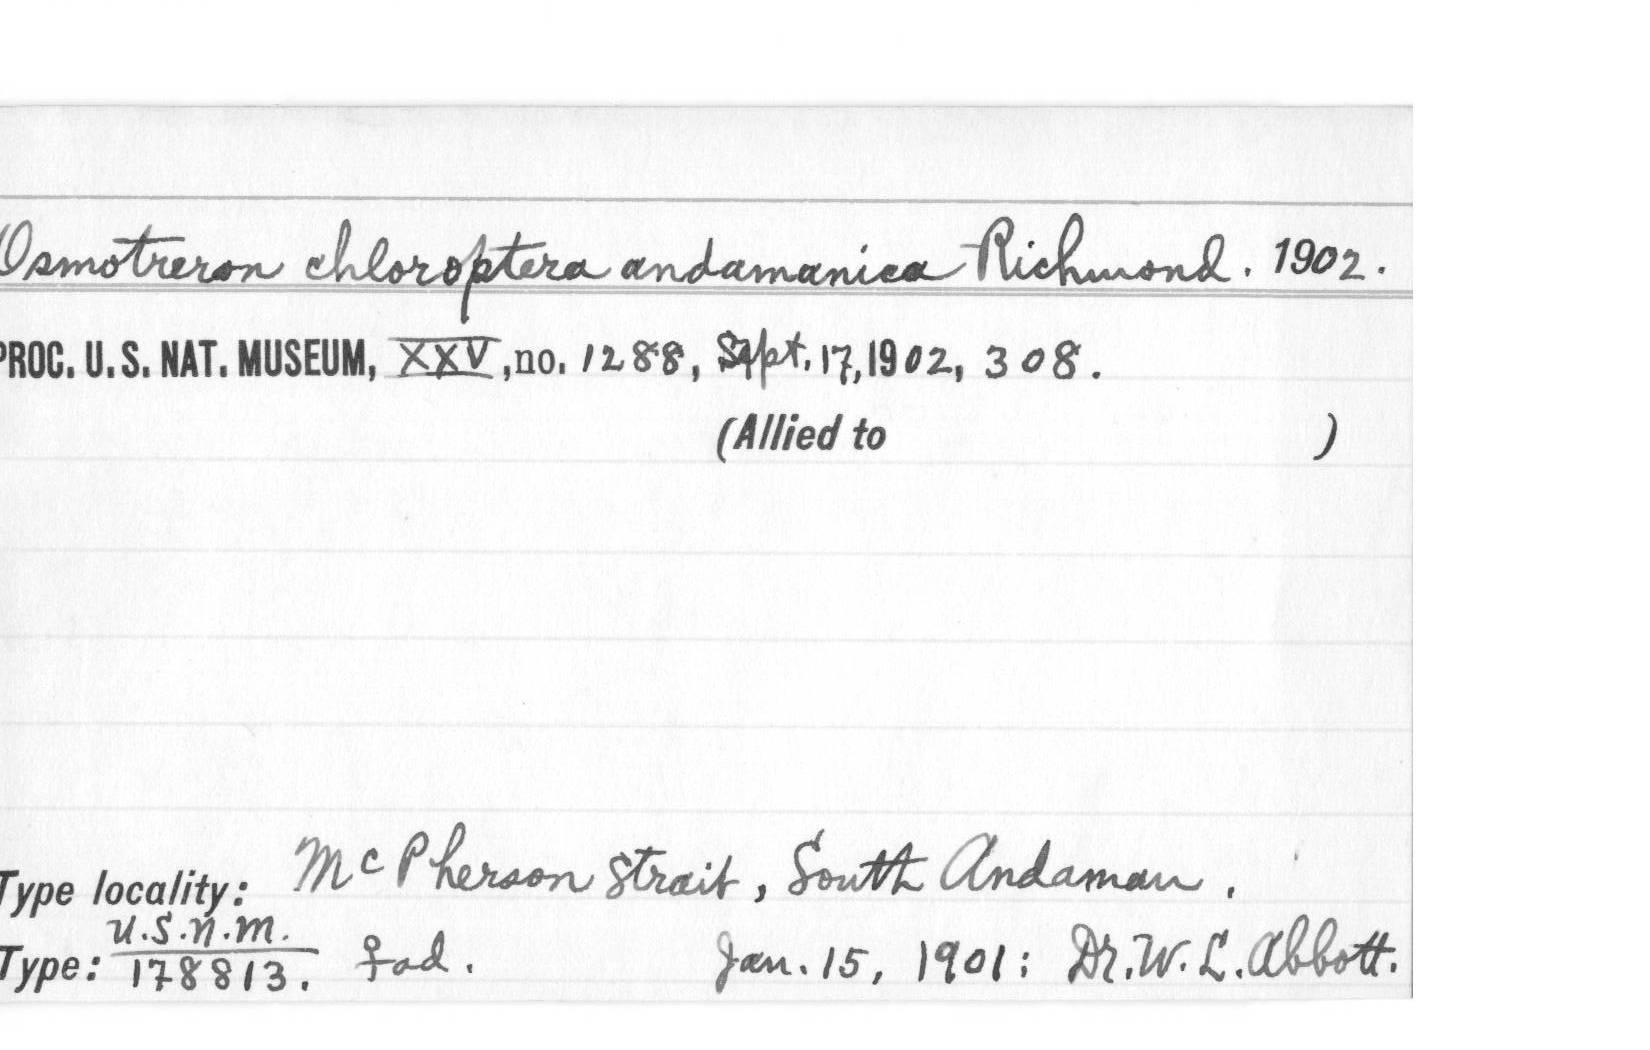 Osmotreron chloroptera andamanica Richmond. 1902.
PROC. U. S. NAT. MUSEUM, XXV, no. 1288, Sept. 17, 1902, 308.
(Allied to )
Type locality: McPherson Strait, South Andaman.
U.S.N.M.
Type: 178813. ♀ ad. Jan. 15, 1901: Dr. W. L. Abbott.